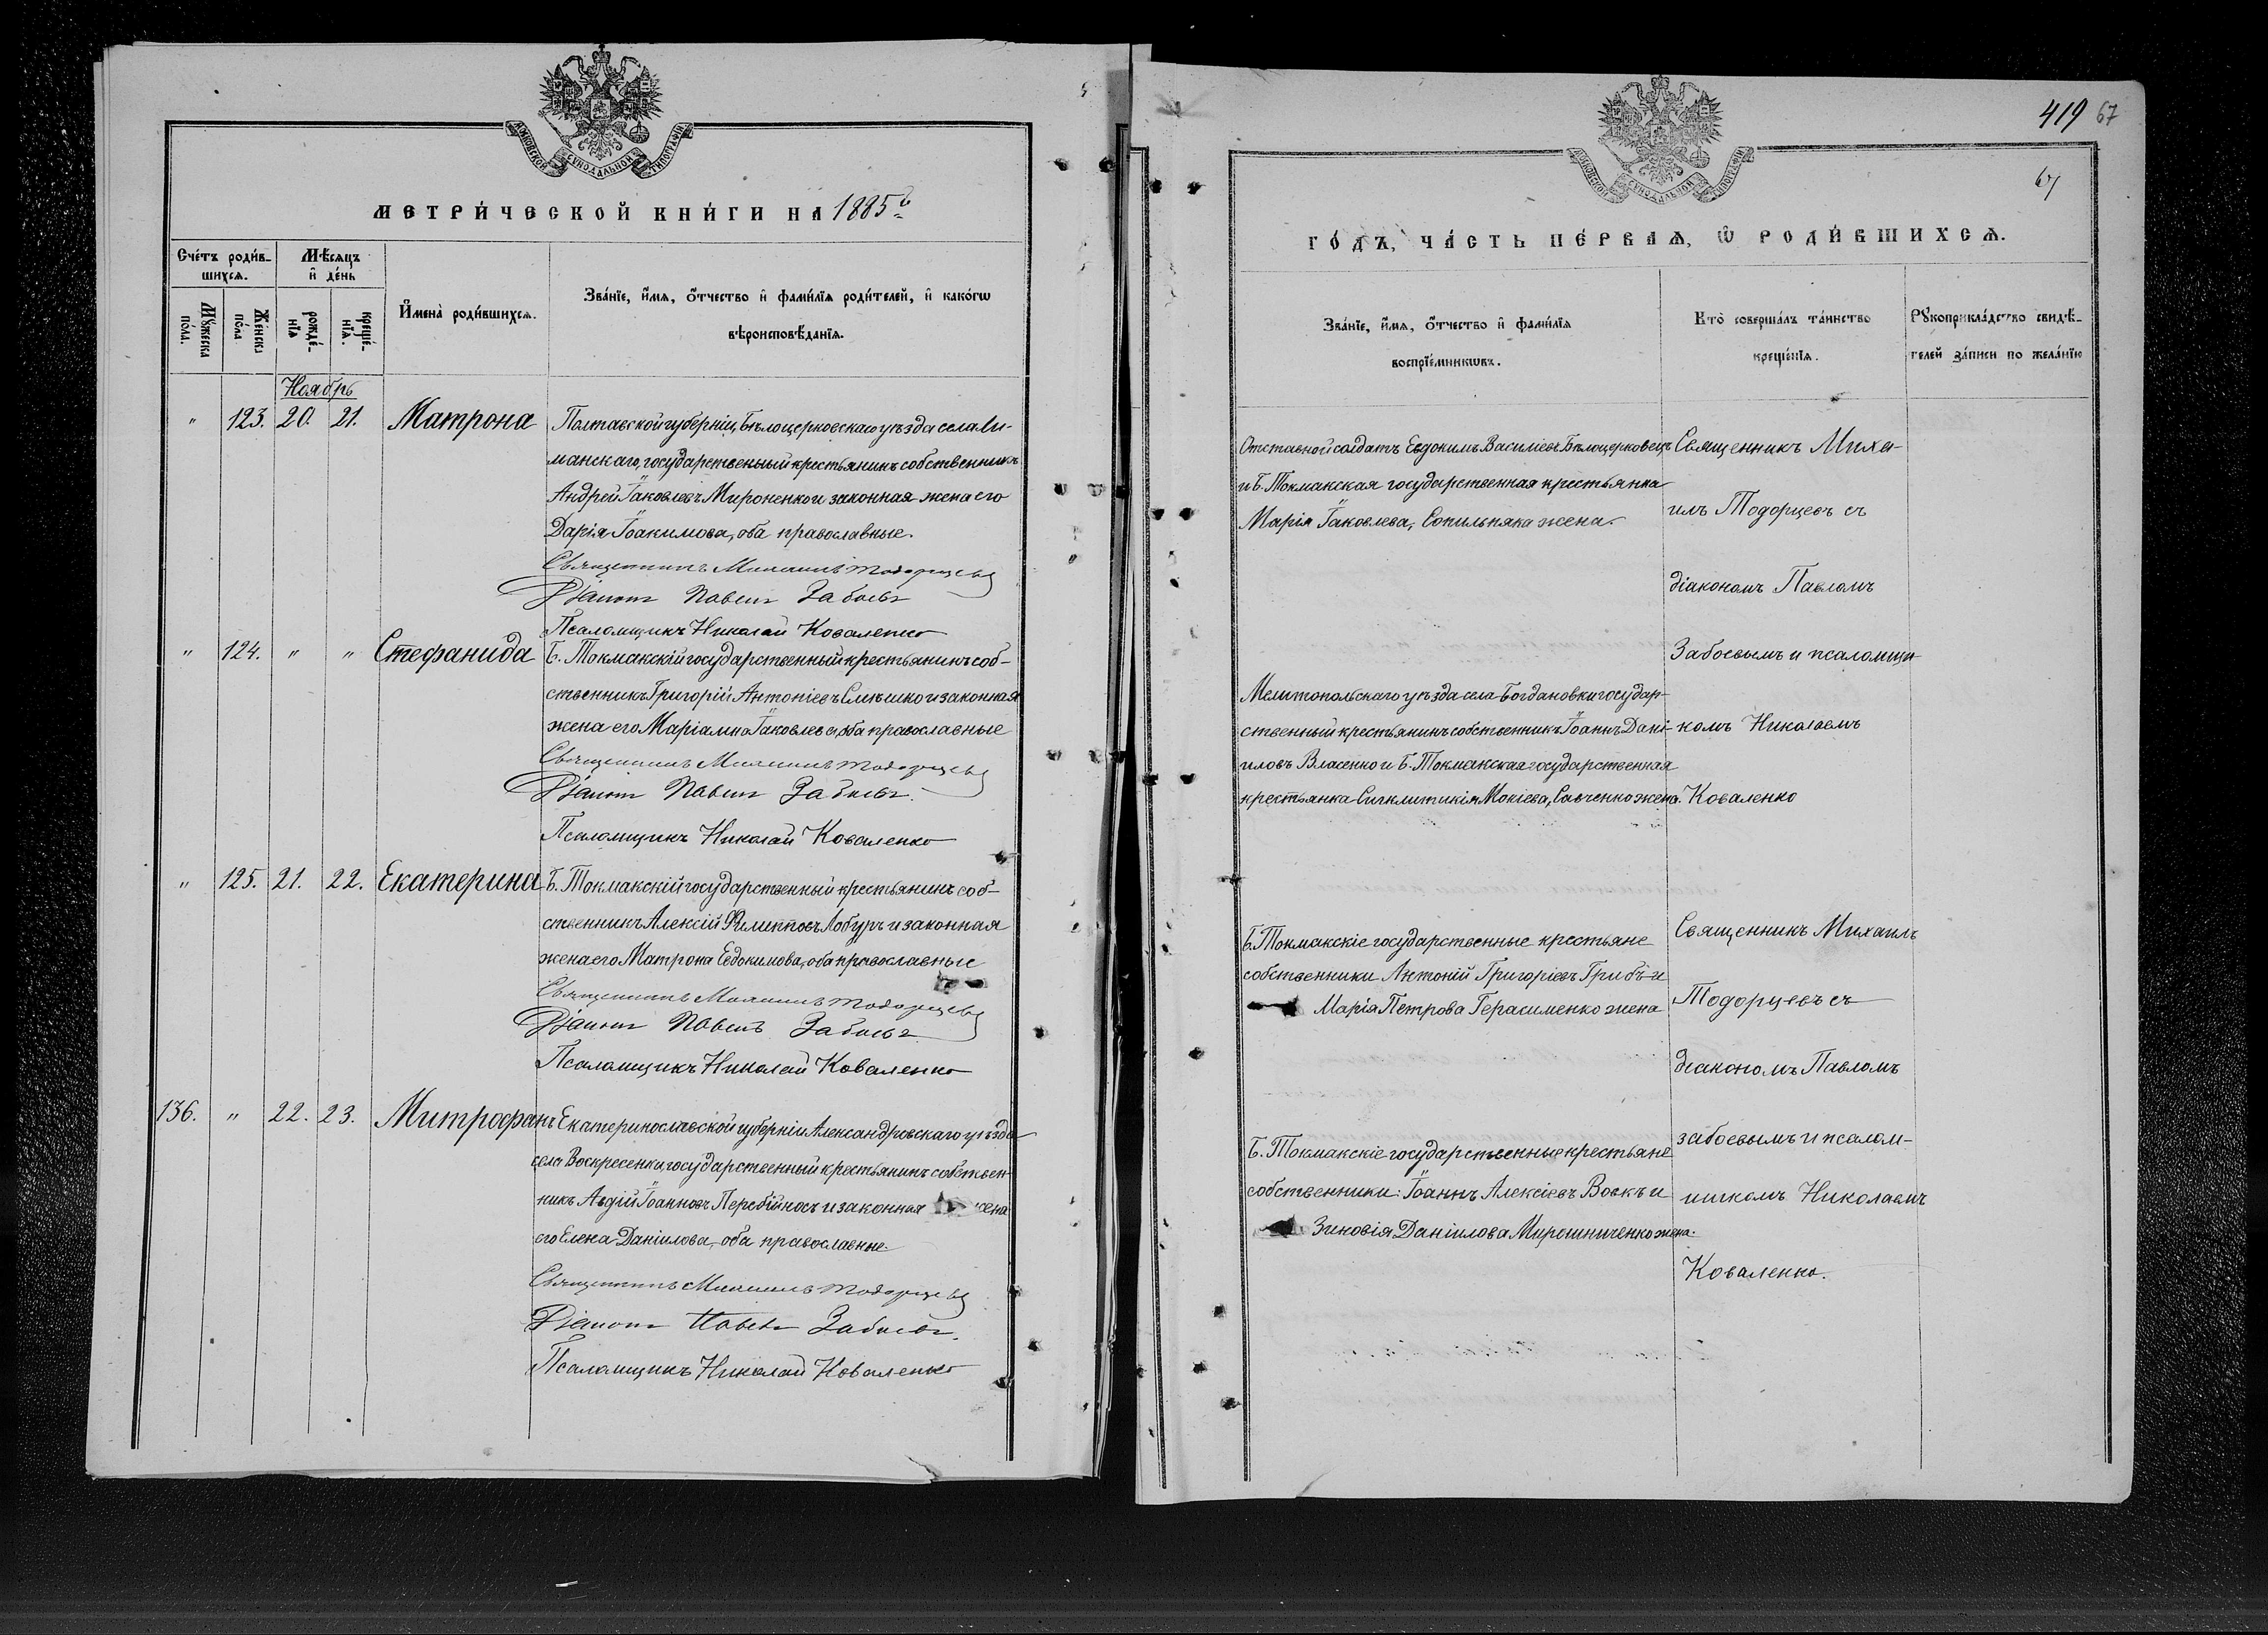 МОСКОВСКОЙ СѴНОДАЛЬНОЙ ТИПОГРАФІИ
МЕТРИ́ЧЕСКОЙ КНИ́ГИ НА 1885й
Сче́тъ роди́в-
шихсѧ.
Мѣ́сѧцъ
и҆ де́нь
Мꙋ́жеска
по́ла.
Же́нска
по́ла
рожде́-
нїѧ
креще́-
нїѧ.
И҆мена̀ роди́вшихсѧ.
Зва́нїе, и҆́мѧ, ѻ҆́тчество и҆ фами́лїѧ роди́телей, и҆ како́гѡ
вѣроисповѣ́данїѧ.
Ноябрь
" 123. 20. 21. Матрона
Полтавской губерніи, Бѣлоцерковскаго уѣзда села Ли-
манскаго, государственный крестьянинъ собственникъ
Андрей Іаковлевъ Мироненко и законная жена его
Дарія Іоакимова, оба православные.
Священникъ Михаилъ Тодорцевъ
Діаконъ Павелъ Забоевъ
Псаломщикъ Николай Коваленко
" 124. " " Стефанида
Б. Токмакскій государственный крестьянинъ соб-
ственникъ Григорій Антоніевъ Смѣшко и законная
жена его Маріамна Іаковлева, оба православные
Священникъ Михаилъ Тодорцевъ
Діаконъ Павелъ Забоевъ.
Псаломщикъ Николай Коваленко
" 125. 21. 22. Екатерина
Б. Токмакскій государственный крестьянинъ соб-
ственникъ Алексій Филипповъ Лобуръ и законная
жена его Матрона Евдокимова, оба православные
Священникъ Михаилъ Тодорцевъ
Діаконъ Павелъ Забоевъ
Псаломщикъ Николай Коваленко
136. " 22. 23. Митрофанъ
Екатеринославской губерніи Александровскаго уѣзда
села Воскресенки, государственный крестьянинъ собствен-
никъ Авдій Іоанновъ Перебійносъ и законная жена
его Елена Даніилова, оба православные.
Священникъ Михаилъ Тодорцевъ
Діаконъ Павелъ Забоевъ.
Псаломщикъ Николай Коваленко
419 67
67
МОСКОВСКОЙ СѴНОДАЛЬНОЙ ТИПОГРАФІИ
ГО́ДЪ, ЧА́СТЬ ПЕ́РВАѦ, Ѡ҆ РОДИ́ВШИХСѦ.
Зва́нїе, и҆́мѧ, ѻ҆́тчество и҆ фами́лїѧ
воспрїе́мникѡвъ.
Кто̀ соверша́лъ та́инство
креще́нїѧ.
Рꙋкоприкла́дство свидѣ́-
телей за́писи по жела́нїю
Отставной солдатъ Евдокимъ Василіевъ Бѣлоцерковецъ
и Б. Токмакская государственная крестьянка
Марія Іаковлева, Сопильняка жена.
Священникъ Миха-
илъ Тодорцевъ съ
діакономъ Павломъ
Забоевымъ и псаломщи-
комъ Николаемъ
Коваленко
Мелитопольскаго уѣзда села Богдановки государ-
ственный крестьянинъ собственникъ Іоаннъ Дані-
иловъ Власенко и Б. Токмакская государственная
крестьянка Сигклитикія Мокіева, Савченко жена.
Б. Токмакскіе государственные крестьяне
собственники Антоній Григоріевъ Грибъ и
Марія Петрова Герасименко жена
Священникъ Михаилъ
Тодорцевъ съ
діакономъ Павломъ
забоевымъ и псалом-
щикомъ Николаемъ
Коваленко.
Б. Токмакскіе государственные крестьяне
собственники: Іоаннъ Алексіевъ Вовкъ и
Зиновія Даніилова Мирошниченко жена.